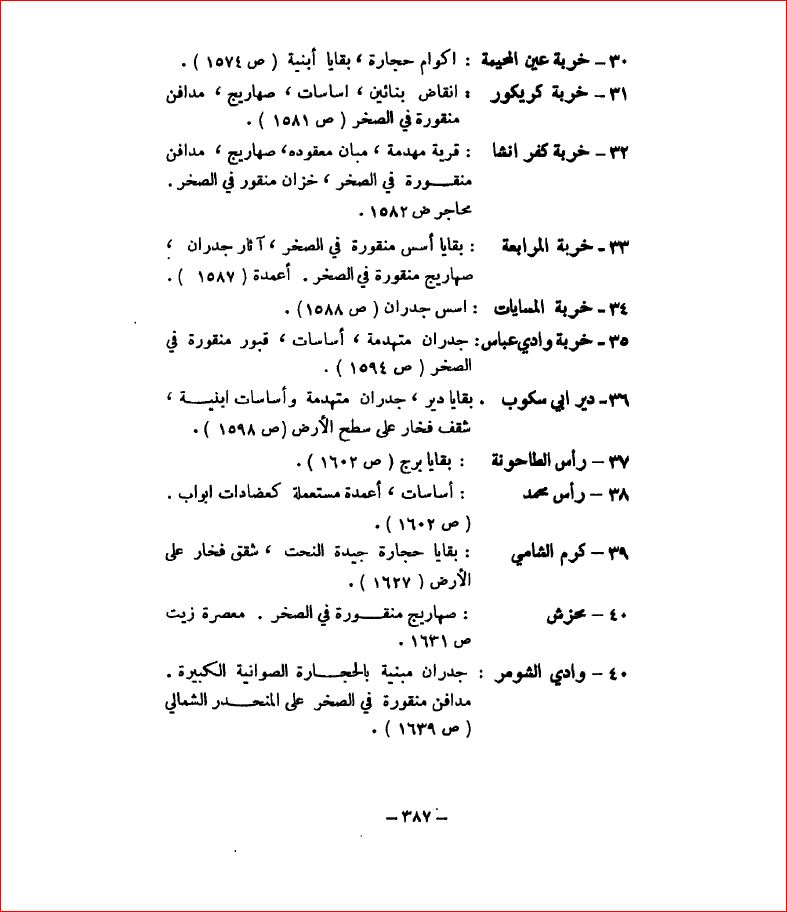 ٣٠ – خربة عين المحيمة : اكوام حجارة ، بقايا أبنية ( ص ١٥٧٤ ) .
٣١ – خربة كريكور : انقاض بنائين ، اساسات ، صهاريج ، مدافن
منقورة في الصخر ( ص ١٥٨١ ) .
٣٢ – خربة كفر انشا : قرية مهدمة ، مبان معقوده، صهاريج ، مدافن
منقـــورة في الصخر ، خزان منقور في الصخر .
محاجر ض ١٥٨٢ .
٣٣ - خربة المرابعة : بقايا أسس منقورة في الصخر ، آثار جدران ،
صهاريج منقورة في الصخر . أعمدة ( ١٥٨٧ ) .
٣٤ – خربة المسايات : اسس جدران ( ص ١٥٨٨) .
٣٥ - خربة وادي عباس: جدران متهدمة ، أساسات ، قبور منقورة في
الصخر ( ص ١٥٩٤ ) .
٣٦- دير ابي سكوب . بقايا دير ، جدران متهدمة وأساسات ابنيـــة ،
شقف فخار على سطح الأرض (ص ١٥٩٨ ) .
٣٧ – رأس الطاحونة : بقايا برج ( ص ١٦٠٢ ) .
٣٨ – رأس محمد : أساسات ، أعمدة مستعملة كعضادات ابواب .
( ص ١٦٠٢ ) .
٣٩ – كرم الشامي : بقايا حجارة جيدة النحت ، شقق فخار على
الأرض ( ١٦٢٧ ) .
٤٠ – محزش : صهاريج منقـــورة في الصخر . معصرة زيت
ص ١٦٣١ .
٤٠ – وادي الشومر : جدران مبنية بالحجـــارة الصوانية الكبيرة .
مدافن منقورة في الصخر على المنحـــدر الشمالي
( ص ١٦٣٩ ) .
– ٣٨٧ –